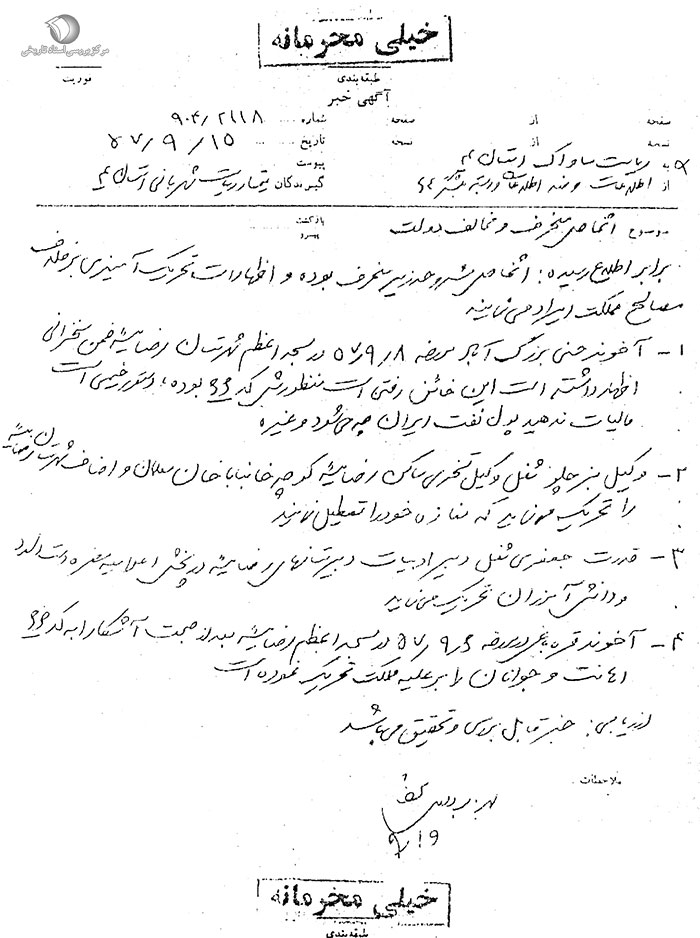 مرکز بررسی اسناد تاریخی
خیلی محرمانه
طبقه بندی
فوریت
آگهی خبر
صفحه از صفحه شماره ۹۰۴/۲۱۱۸
نسخه از نسخه تاریخ ۵۷/۹/۱۵
به ریاست ساواک استان ۴ پیوست
از اطلاعات و ضد اطلاعات گیرندگان تیمسار ریاست شهربانی استان ۴
موضوع اشخاص منحرف و مخالف دولت بازگشت
پیرو
برابر اطلاع رسیده: اشخاص مشروحه زیر منحرف بوده و اظهارات تحریک آمیزی بر خلاف
مصالح مملکت ایراد می نمایند
۱- آخوند حسنی بزرگ آباد مورخه ۵۷/۹/۸ در مسجد اعظم شهرستان رضائیه ضمن سخنرانی
اظهار داشته است این خائن رفتنی است منظورش کد ۶۶ بوده، و مقرر خیسی است
مالیات ندهید پول نفت ایران چه می شود و غیره
۲- وکیل شغل وکیل ساکن رضائیه کوچه خانباباخان معلمان و اصناف شهرستان رضائیه
را تحریک می نماید که مغازه خود را تعطیل نمایند
۳- قدرت جعفری شغل دبیر ادبیات دبیرستانهای رضائیه در پخش اعلامیه مضره دست دارد
و دانش آموزان تحریک می نماید
۴- آخوند قره باغی در مورخه ۵۷/۹/۶ در مسجد اعظم رضائیه بعد از صحبت آشکارا به کد ۶۶
اهانت و جوانان را بر علیه مملکت تحریک نموده است
ارزیابی: خبر قابل بررسی و تحقیق می باشد
ملاحظات
۹/۱۹
خیلی محرمانه
طبقه بندی